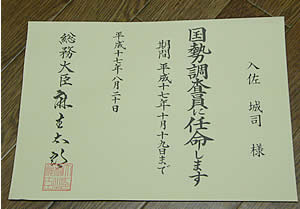 入佐 城司 様
国勢調査員に任命します
期間 平成十七年十月十九日まで
平成十七年八月二十日
総務大臣 麻生太郎